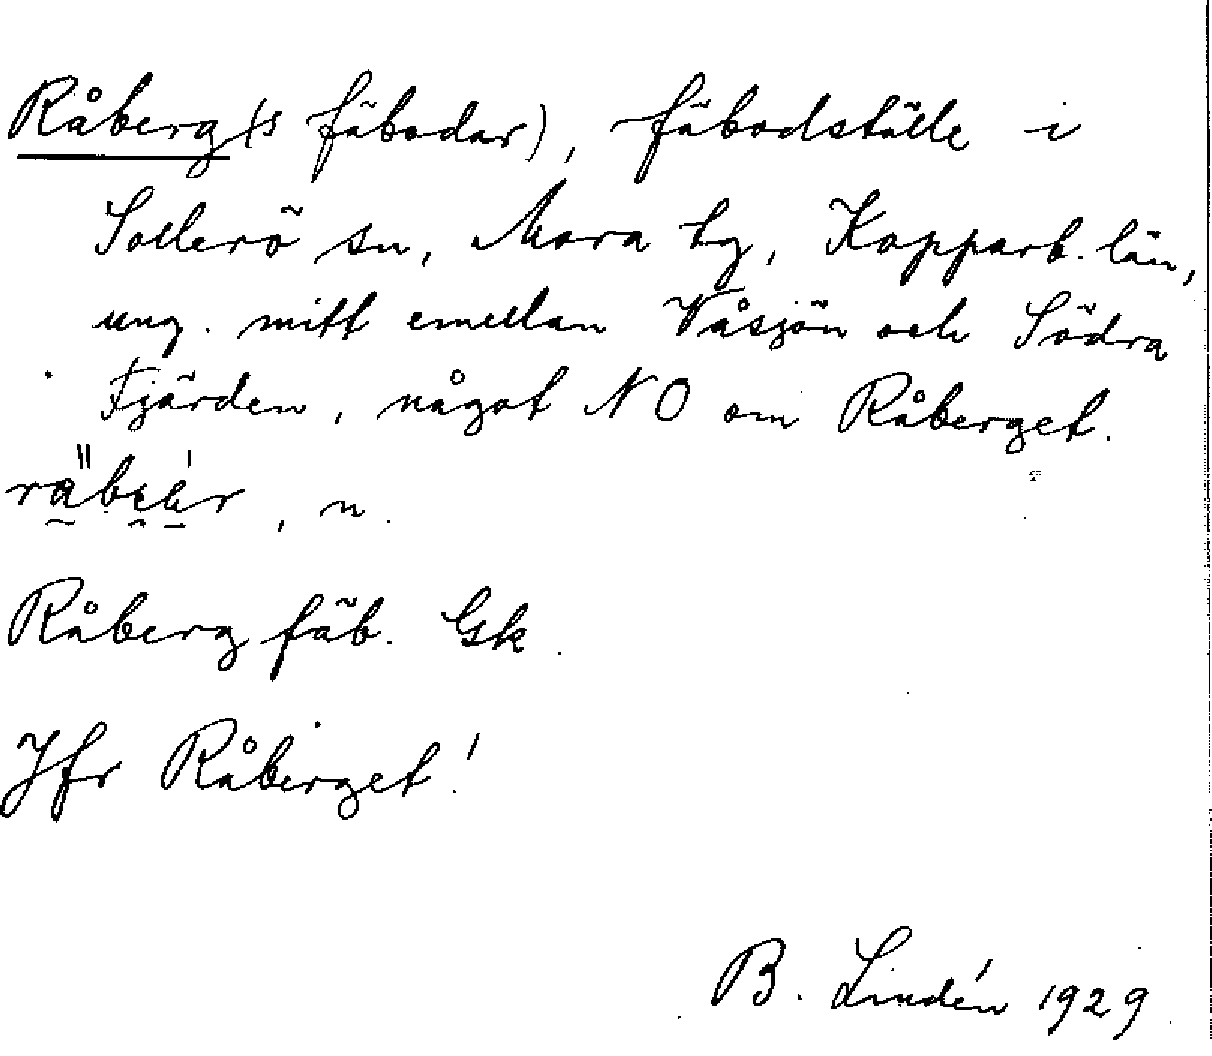 Råberg(s fäbodar), fäbodställe i
Sollerö sn, Mora tg, Kopparb. län,
ung. mitt emellan Våsjön och Södra
Fjärden, något NO om Råberget.
, n.
Råberg fäb. Gk.
Jfr Råberget!
B. Lindén 1929